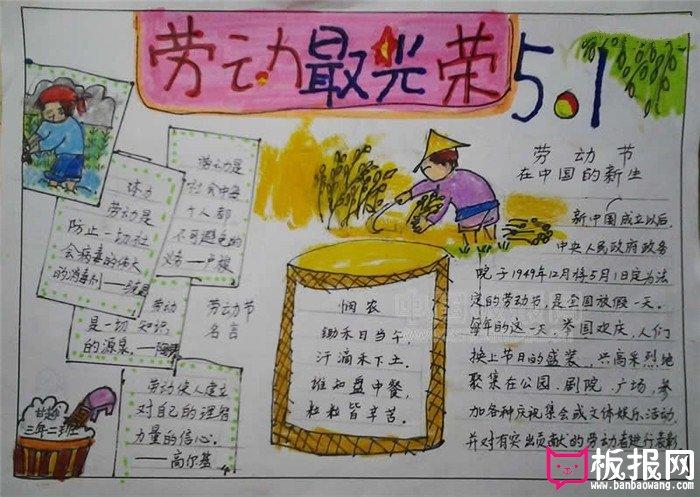 劳动最光荣
5.1
劳动是
社会中每
个人都
不可避免的
义务—卢梭
体力
劳动是
防止一切社
会病毒的伟大
的消毒剂—
劳动
是一切知识
的源泉。—
劳动节
名言
劳动使人建立
对自己的理智
力量的信心。
——高尔基
三年二班
悯农
锄禾日当午,
汗滴禾下土。
谁知盘中餐,
粒粒皆辛苦。
劳动节
在中国的新生
新中国成立以后,
中央人民政府政务
院于1949年12月将5月1日定为法
定的劳动节,是全国放假一天。
每年的这一天,举国欢庆,人们
换上节日的盛装,兴高采烈地
聚集在公园、剧院、广场,参
加各种庆祝集会或文体娱乐活动,
并对有突出贡献的劳动者进行表彰
板报网
www.banbaowang.com